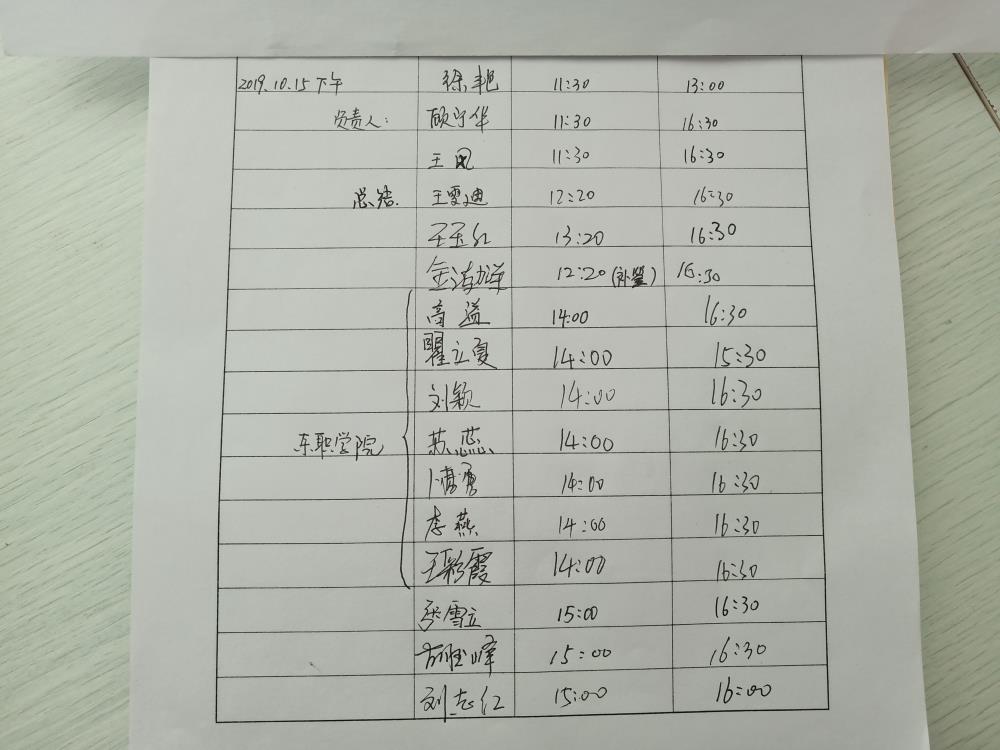 2019.10.15下午 徐艳 11:30 13:00
负责人: 顾宁华 11:30 16:30
王 11:30 16:30
总结. 王雪迪 12:20 16:30
王玉红 13:20 16:30
金 12:20 (补签) 16:30
高溢 14:00 16:30
瞿立夏 14:00 15:30
刘颖 14:00 16:30
蕊 14:00 16:30
东职学院
勇 14:00 16:30
李燕 14:00 16:30
王彩霞 14:00 16:30
张雪立 15:00 16:30
方胜峰 15:00 16:30
刘志红 15:00 16:00